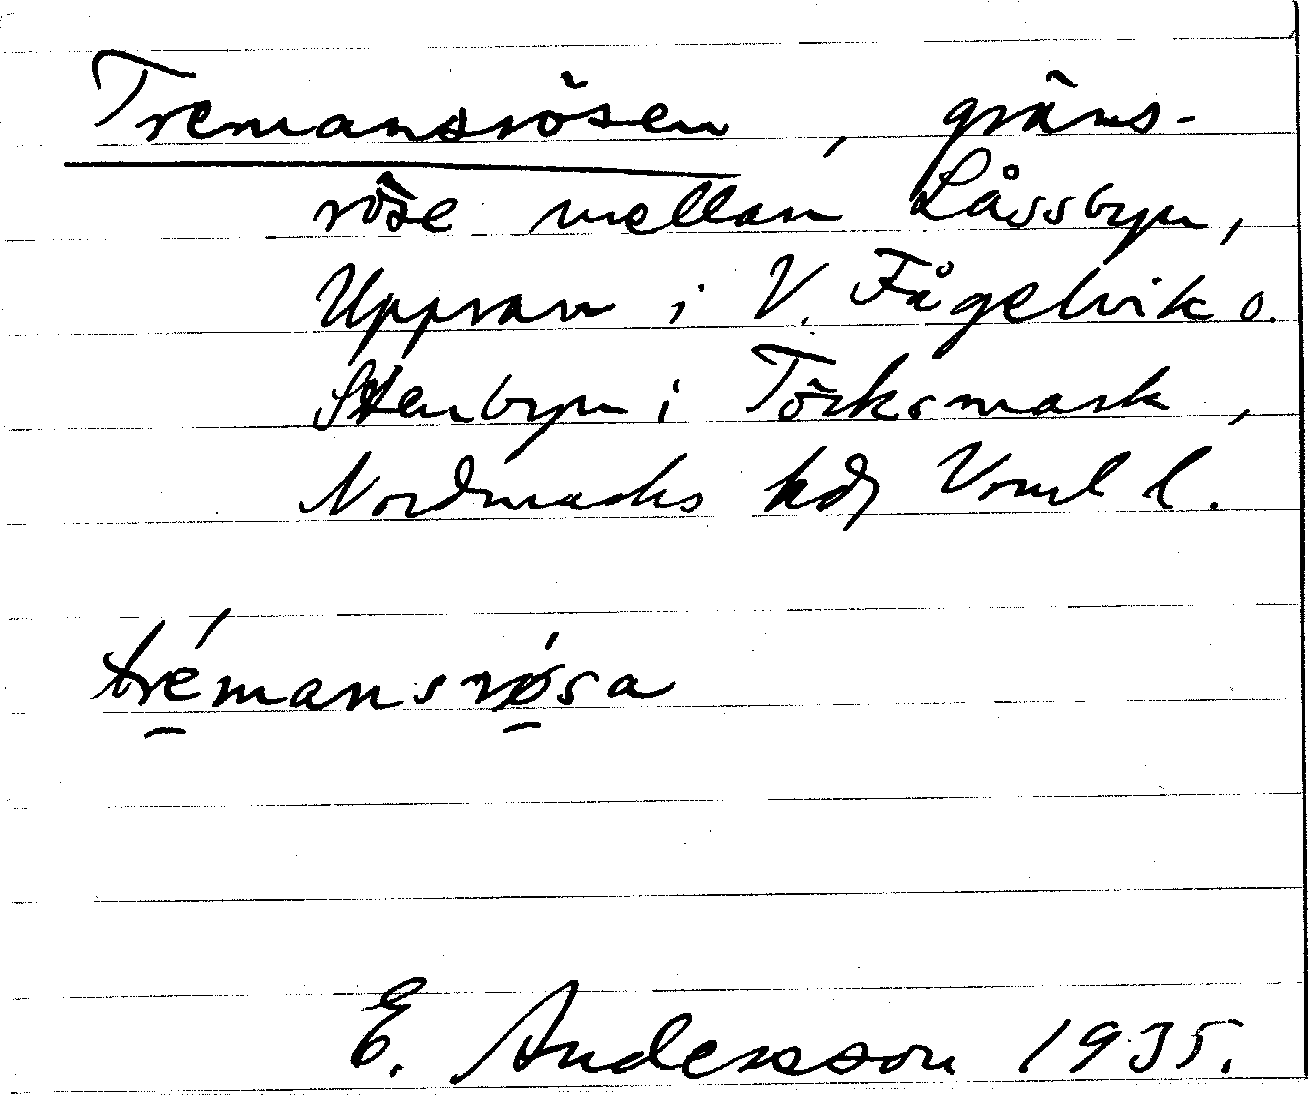 Tremansrösen, gräns-
röse mellan Låssbyn,
Uppsan i V. Fågelvik o.
Stenbyn i Töcksmark,
Nordmarks hd, Vrml l.
trémansrǿsa
E. Andersson 1935.